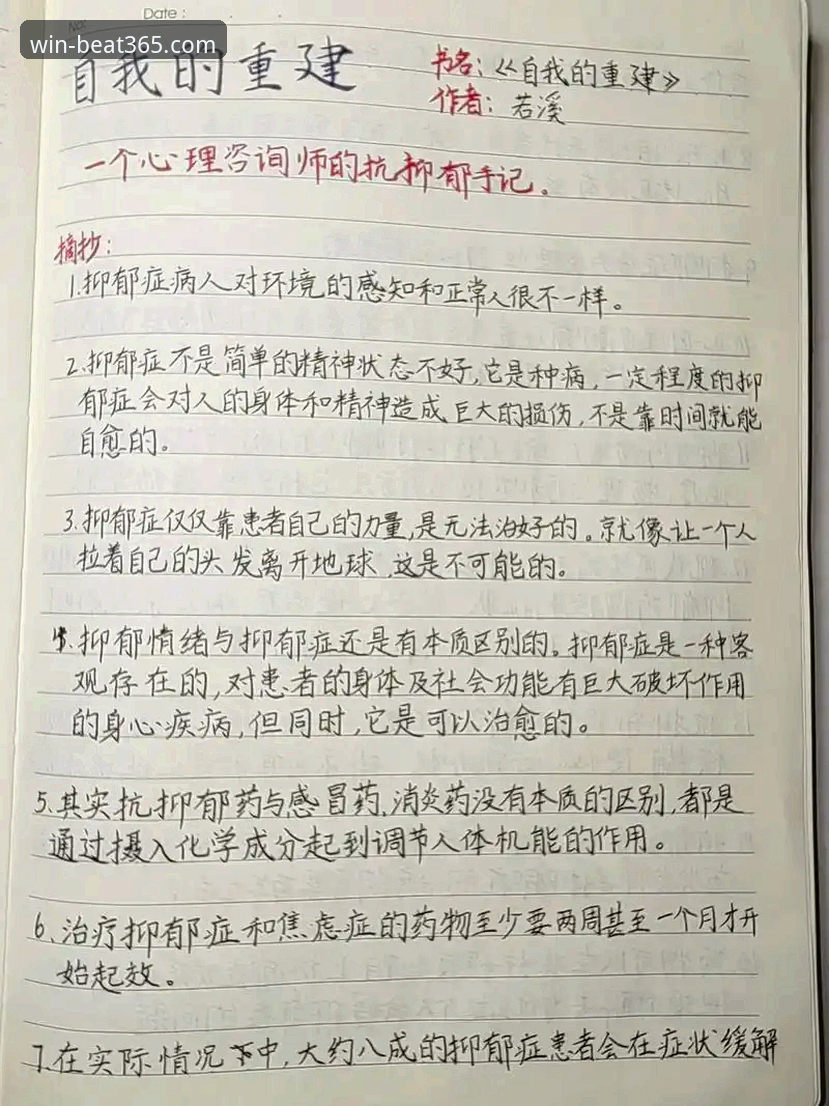 Date:
No:
win-beat365.com
自我的重建
书名:《自我的重建》
作者: 若溪
一个心理咨询师的抗抑郁手记.
摘抄:
1.抑郁症病人对环境的感知和正常人很不一样。
2.抑郁症不是简单的精神状态不好,它是种病,一定程度的抑
郁症会对人的身体和精神造成巨大的损伤,不是靠时间就能
自愈的。
3.抑郁症仅仅靠患者自己的力量,是无法治好的。就像让一个人
拉着自己的头发离开地球,这是不可能的。
4.抑郁情绪与抑郁症还是有本质区别的。抑郁症是一种客
观存在的,对患者的身体及社会功能有巨大破坏作用
的身心疾病,但同时,它是可以治愈的。
5.其实抗抑郁药与感冒药、消炎药没有本质的区别,都是
通过摄入化学成分起到调节人体机能的作用。
6.治疗抑郁症和焦虑症的药物至少要两周甚至一个月才开
始起效。
7.在实际情况下中,大约八成的抑郁症患者会在症状缓解